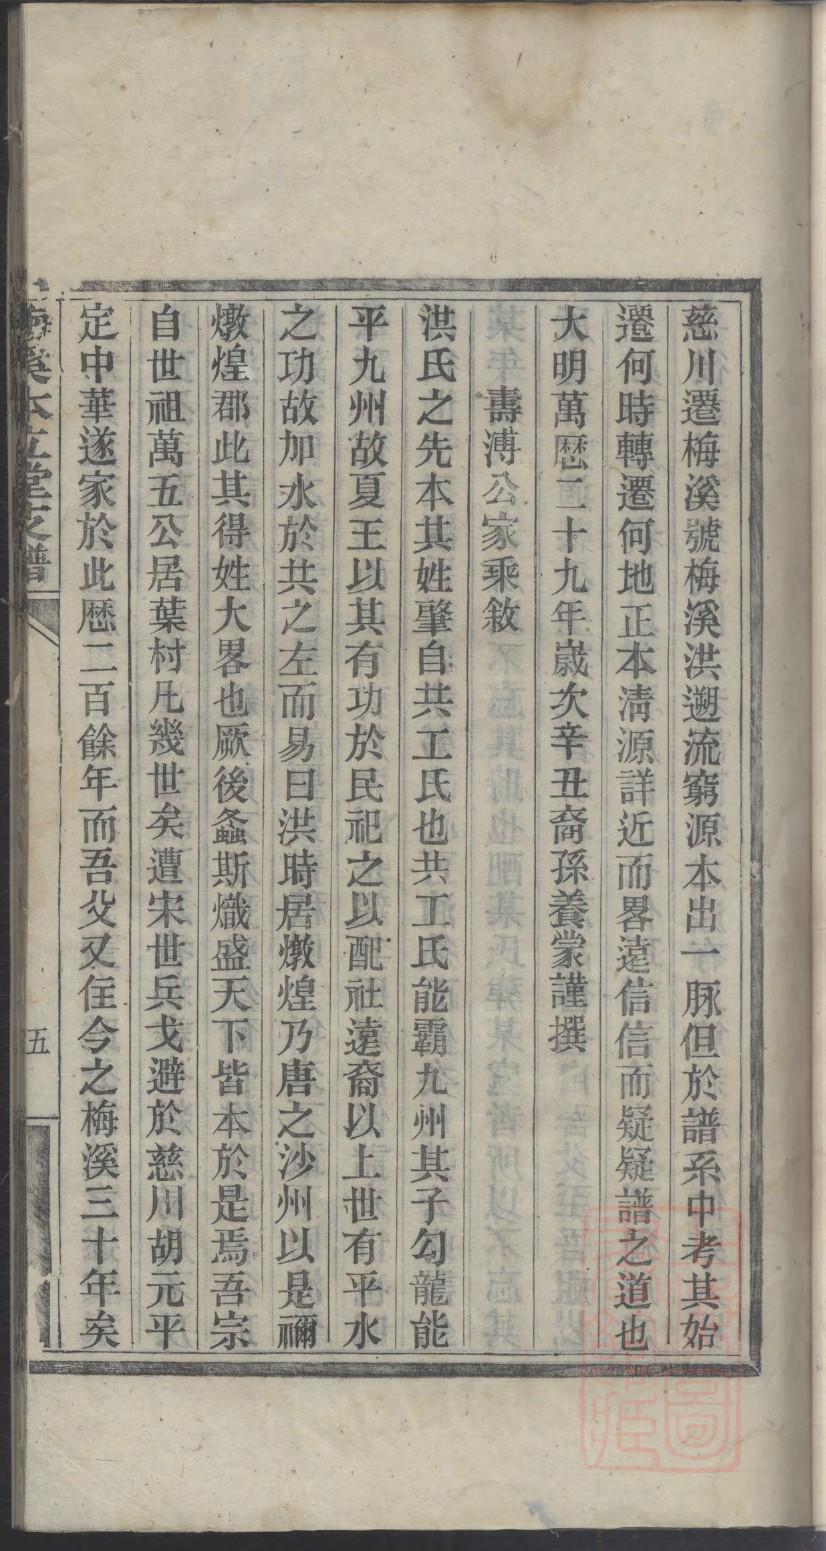 慈川遷梅溪號梅溪洪遡流窮源本出一脉但於譜系中考其始
遷何時轉遷何地正本清源詳近而畧遠信信而疑疑譜之道也
大明萬厯二十九年嵗次辛丑裔孫養蒙謹撰
壽溥公家乘敘
洪氏之先本其姓肇自共工氏也共工氏能霸九州其子勾龍能
平九州故夏王以其有功於民祀之以配社遠裔以上世有平水
之功故加水於共之左而易曰洪時居燉煌乃唐之沙州以是禰
燉煌郡此其得姓大畧也厥後螽斯熾盛天下皆本於是焉吾宗
自世祖萬五公居葉村凡幾世矣遭宋世兵戈避於慈川胡元平
定中華遂家於此厯二百餘年而吾父又住今之梅溪三十年矣
梅溪本立堂支譜
五